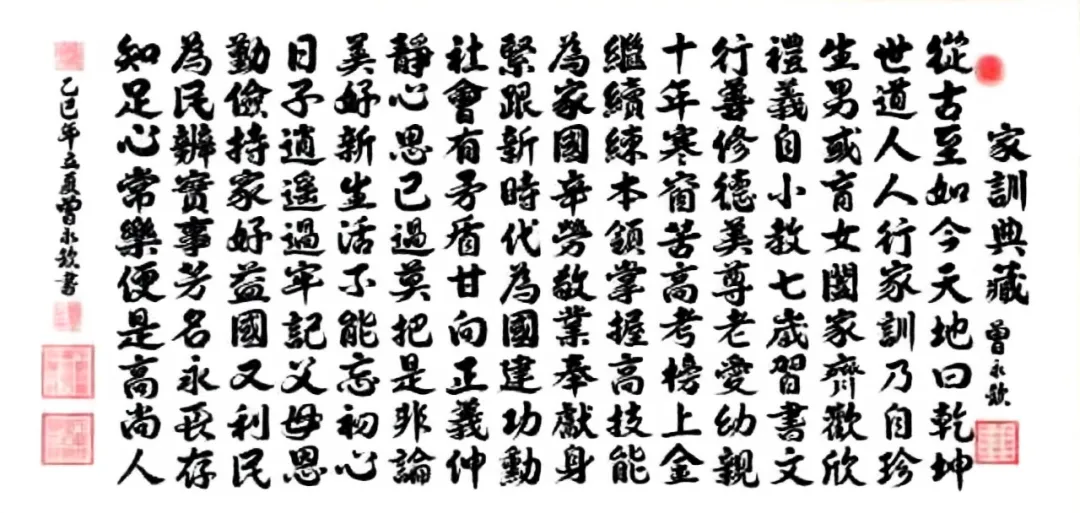 家訓典藏 曾永欽
從古至如今天地曰乾坤
世道人人行家訓乃自珍
生男或育女闔家齊歡欣
禮義自小教七歲習書文
行善修德美尊老愛幼親
十年寒窗苦高考榜上金
繼續練本領掌握高技能
為家國辛勞敬業奉獻身
緊跟新時代為國建功勳
社會有矛盾甘向正義伸
靜心思己過莫把是非論
美好新生活不能忘初心
日子逍遙過牢記父母恩
勤儉持家好益國又利民
為民辦實事芳名永長存
知足心常樂便是高尚人
乙巳年立夏曾永欽書